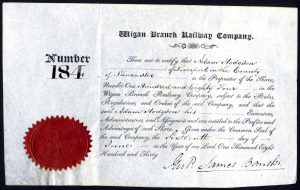 Wigan Branch Railway Company.
Number
184
These are to certify that Adam Hodgson
of Liverpool in the County
of Lancaster is the Proprietor of the Share,
Number One Hundred and Eighty Four
in the
Wigan Branch Railway Company, subject to the Rules,
Regulations, and Orders of the said Company, and that the
said Adam Hodgson his Executors,
Administrators, and Assigns are entitled to the Profits and
Advantages of such Share. Given under the Common Seal of
the said Company, the Sixteenth day of
June in the Year of our Lord One Thousand Eight
Hundred and Thirty
James